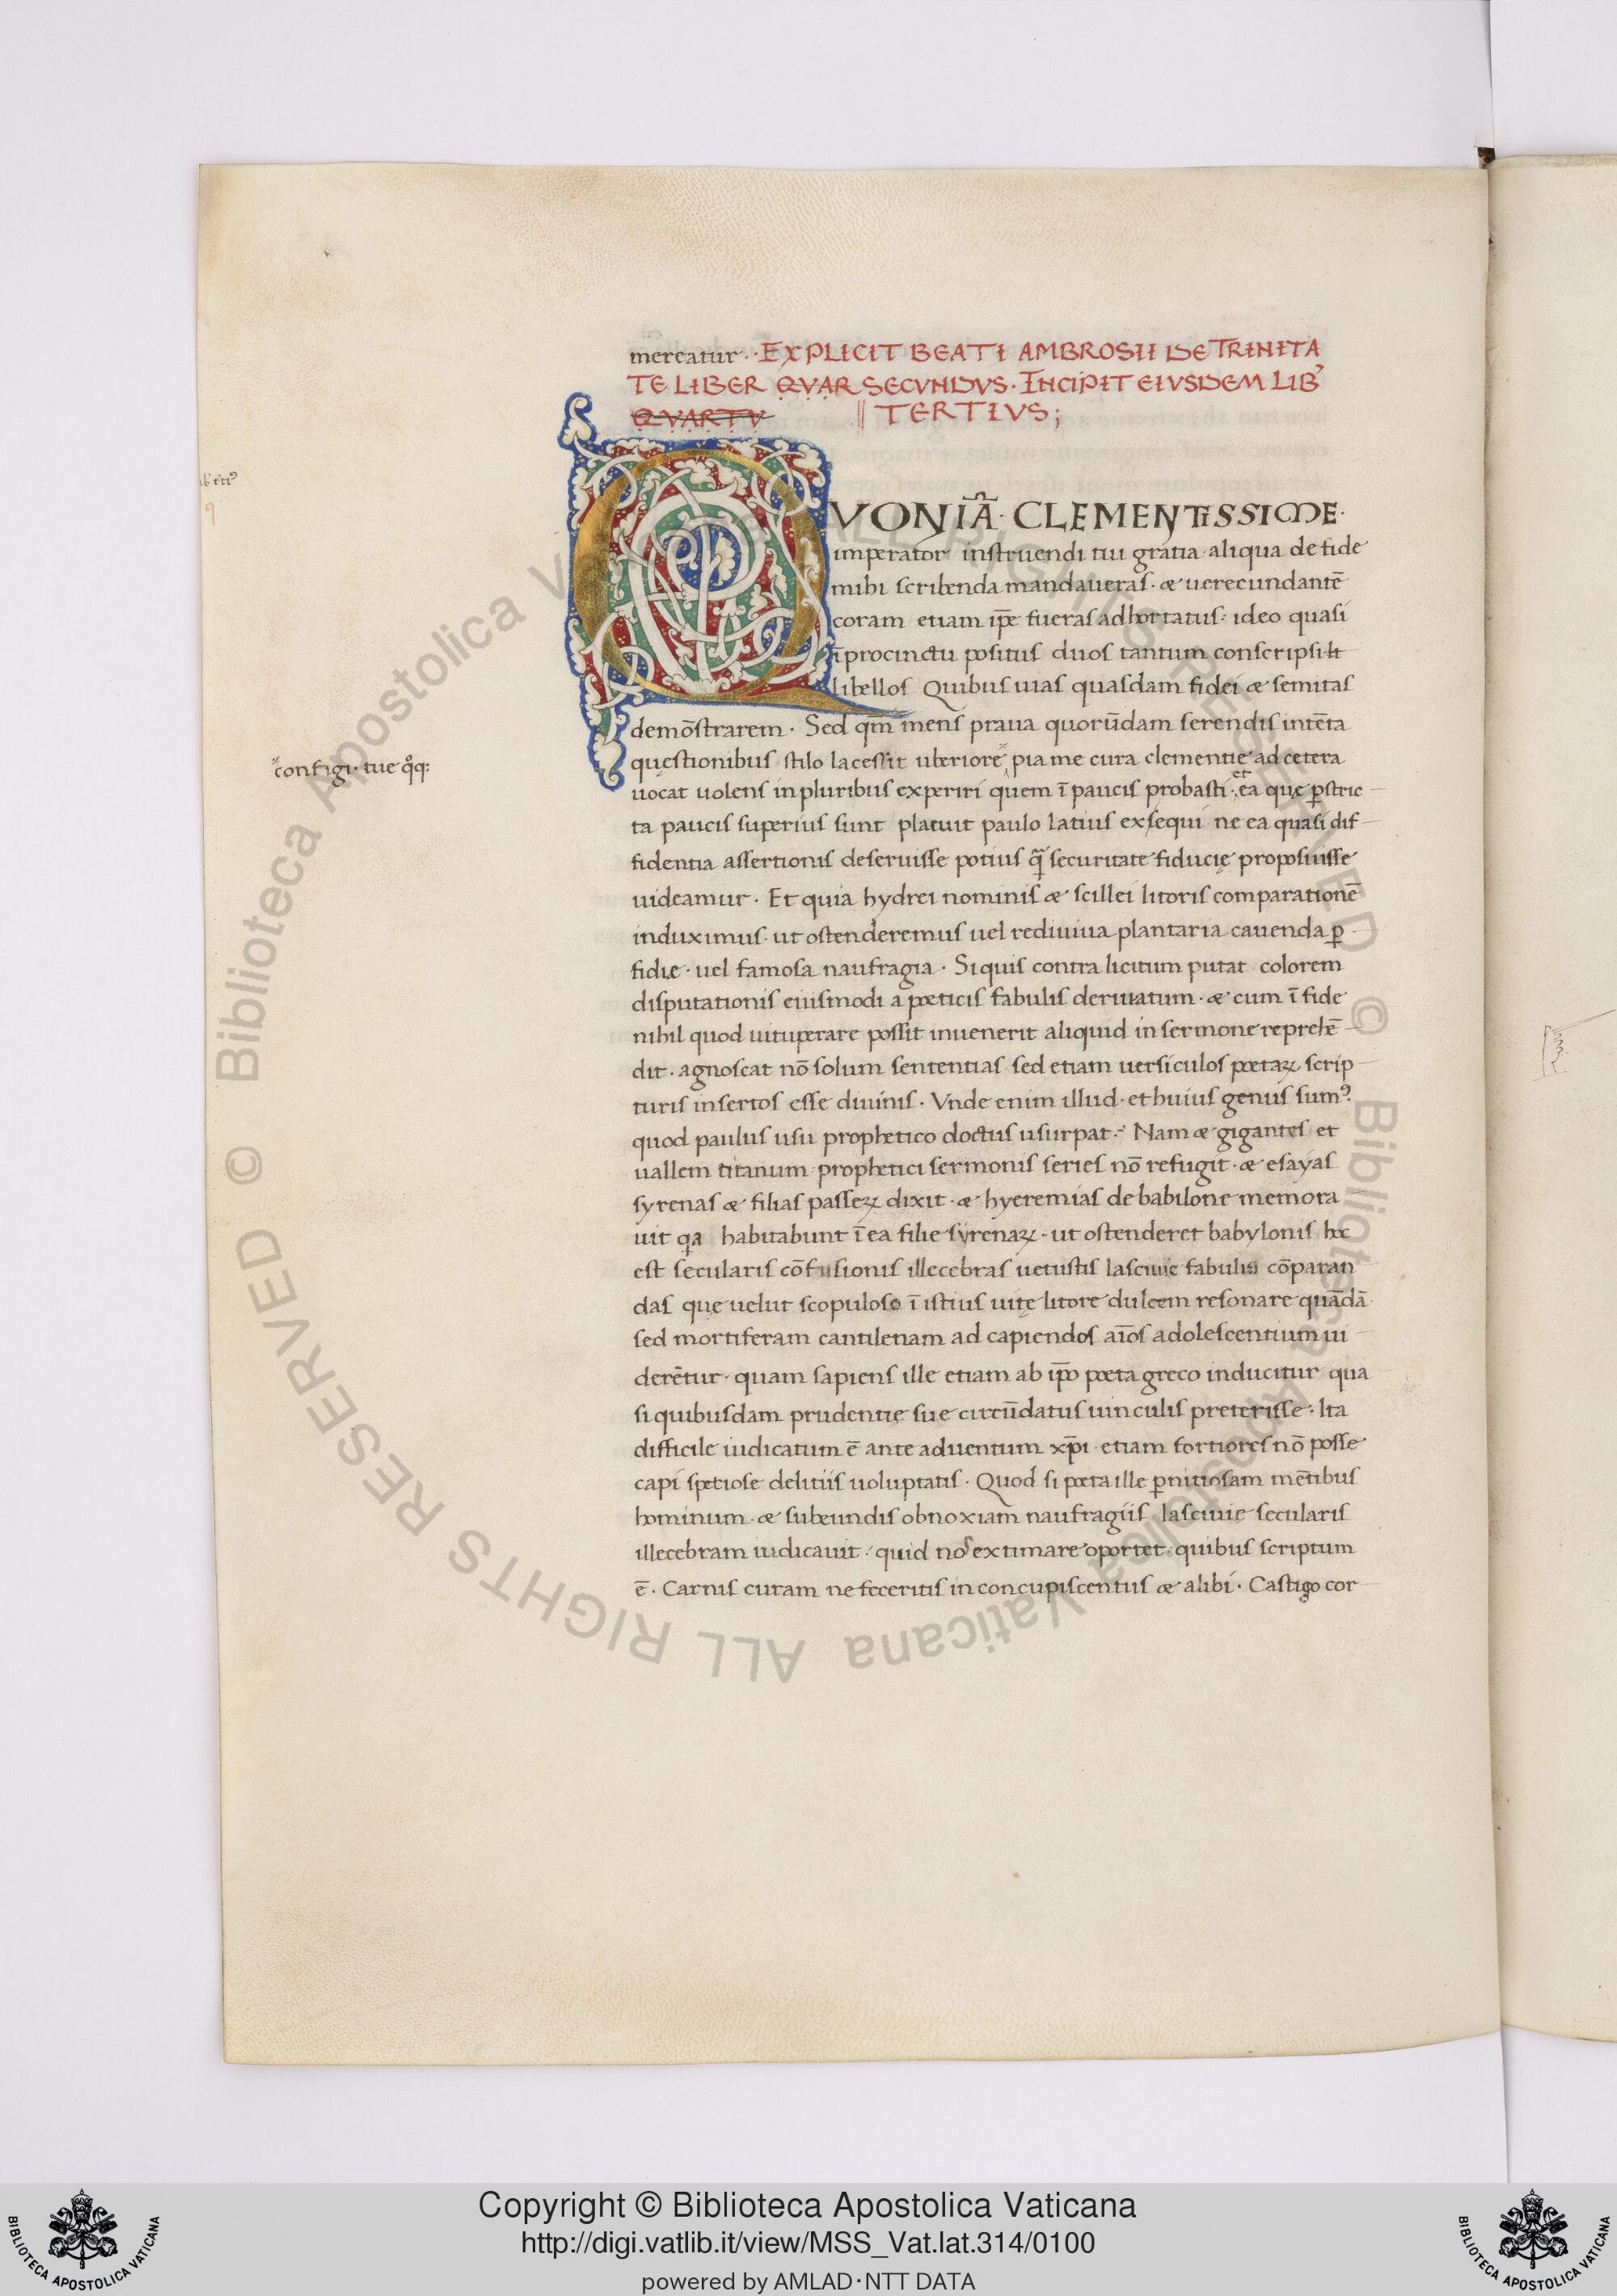 mereatur · EXPLICIT BEATI AMBROSII DE TRINITA
TE LIBER QVAR SECVNDVS · INCIPIT EIVSDEM LIB᾽
QVARTV || TERTIVS;
QVONIĀ · CLEMENTISSIME ·
imperator instruendi tui gratia aliqua de fide
mihi scribenda mandaueras · æ uerecundantē
coram etiam ip̄e fueras adhortatus · ideo quasi
ī procinctu positus duos tantum conscripsi
libellos Quibus uias quasdam fidei æ semitas
demōstrarem · Sed qm̄ mens praua quorūdam serendis intēta
quęstionibus stilo lacessit uberiore ̋ pia me cura clementię ad cetera
̋configi · tue qͦq:
uocat uolens in pluribus experiri quem ī paucis probasti · et ea quę ꝑstric
ta paucis superius sunt placuit paulo latius exsequi ne ea quasi dif
fidentia assertionis deseruisse potius q̄ securitate fiducię proposuisse
uideamur · Et quia hydrei nominis æ scillei litoris comparationē
induximus · ut ostenderemus uel rediuiua plantaria cauenda ꝑ
fidię · uel famosa naufragia · Siquis contra licitum putat colorem
disputationis eiusmodi a poeticis fabulis deriuatum · æ cum ī fide
nihil quod uituperare possit inuenerit aliquid in sermone reprehē
dit · agnoscat nō solum sententias sed etiam uersiculos poetaꝝ scrip
turis insertos esse diuinis · Vnde enim illud · et huius genus sumꝰ
quod paulus usu prophetico doctus usurpat · Nam æ gigantes et
uallem titanum prophetici sermonis series nō refugit · æ esayas
syrenas æ filias passeꝝ dixit · æ hyeremias de babilone memora
uit qa habitabunt ī ea filie syrenaꝝ · ut ostenderet babylonis hoc
est secularis cōfusionis illecebras uetustis lasciuie fabulis cōparan
das quę uelut scopuloso ī istius uitę litore dulcem resonare quādā
sed mortiferam cantilenam ad capiendos aīos adolescentium ui
derētur · quam sapiens ille etiam ab ip̄o poeta greco inducitur qua
si quibusdam prudentię suę circūdatus uinculis preterisse · Ita
difficile iudicatum ē ante aduentum xp̄i etiam fortiores nō posse
capi spetiose delitiis uoluptatis · Quod si poeta ille ꝑnitiosam mētibus
hominum · æ subeundis obnoxiam naufragiis lasciuię secularis
illecebram iudicauit · quid nos extimare oportet · quibus scriptum
ē · Carnis curam ne feceritis in concupiscentiis æ alibi · Castigo cor
Copyright © Biblioteca Apostolica Vaticana
http://digi.vatlib.it/view/MSS_Vat.lat.314/0100
powered by AMLAD·NTT DATA
BIBLIOTECA APOSTOLICA VATICANA
BIBLIOTECA APOSTOLICA VATICANA
© Biblioteca Apostolica Vaticana ALL RIGHTS RESERVED © Biblioteca Apostolica Vaticana ALL RIGHTS RESERVED